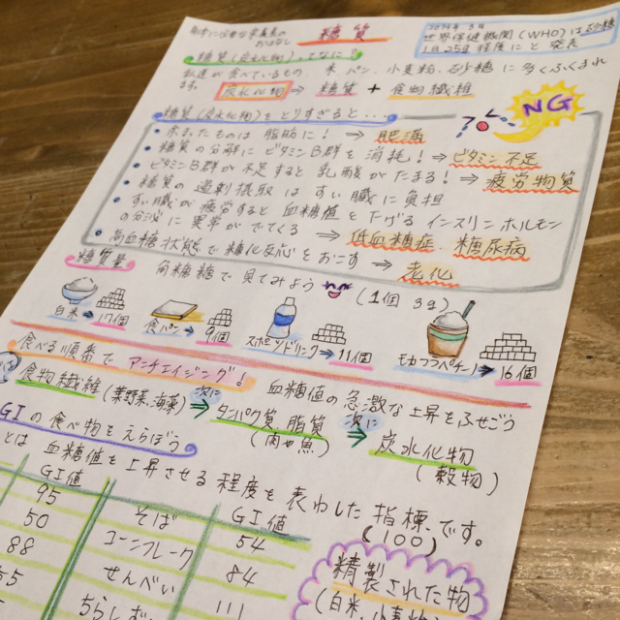 身体に必要な栄養素の
おはなし
糖質
2014年3月
世界保健機関(WHO)は砂糖
1日25g程度にと発表
糖質(炭水化物)ってなに?
私達が食べているもの、米、パン、小麦粉、砂糖に多くふくまれ
ます。 炭水化物 ⇒ 糖質 + 食物繊維
糖質(炭水化物)をとりすぎると...
NG
• あまったものは脂肪に! → 肥満
• 糖質の分解にビタミンB群を消耗! → ビタミン不足
• ビタミンB群が不足すると乳酸がたまる! → 疲労物質
• 糖質の過剰摂取はすい臓に負担
• すい臓が疲労すると血糖値を下げるインスリンホルモン
の分泌に異常がでてくる → 低血糖症、糖尿病
• 高血糖状態で糖化反応をおこす → 老化
糖質量
角砂糖で見てみよう (1個 3g)
白米→17個
食パン→9個
スポーツドリンク→11個
モカフラペチーノ→16個
食べる順番でアンチエイジング!
血糖値の急激な上昇をふせごう
食物繊維(葉野菜、海藻) 次に⇒ タンパク質、脂質(肉や魚) 次に⇒ 炭水化物(穀物)
GIの食べ物をえらぼう
とは血糖値を上昇させる程度を表わした指標です。
(100)
GI値
GI値
95 そば 54
50 コーンフレーク 84
88 せんべい 111
55 ちらしずし
精製された物
(白米、小麦粉